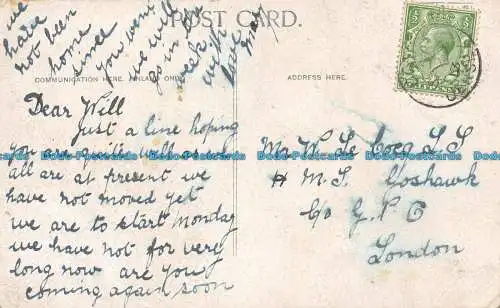 POST CARD.
we
have
not been
home
since
you were
we will
go in the
week
with
love
May
COMMUNICATION HERE. INLAND ONLY.
ADDRESS HERE.
Dear Will
Just a line hoping
you are quite well as we
all are at present we
have not moved yet
we are to start Monday
we have not for very
long now are you
coming again soon
Mr W. Le Cocq L S
H M. S. Goshawk
c/o G. P O
London
Dodo-Postcards Dodo-Postcards Dodo-Postcards Dodo-Postcards